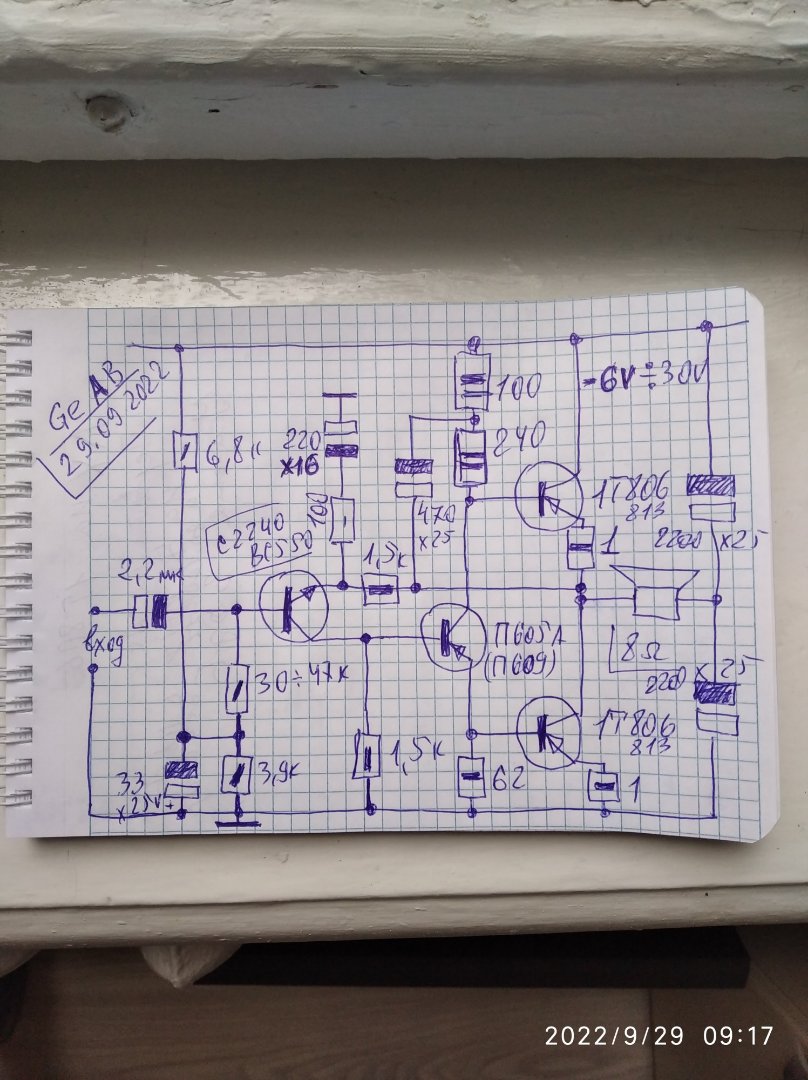 Ge AB
29.09.2022
100
-6V÷30V
6,8к
220
x16
240
1T806
813
470
x25
100
C2240
BC550
1
2200 x25
2,2мк
1,5к
вход
П605А
(П609)
8Ω
30÷47к
2200 x 25
1T806
813
1,5к
3,9к
62
33
x25V+
1
2022/9/29 09:17